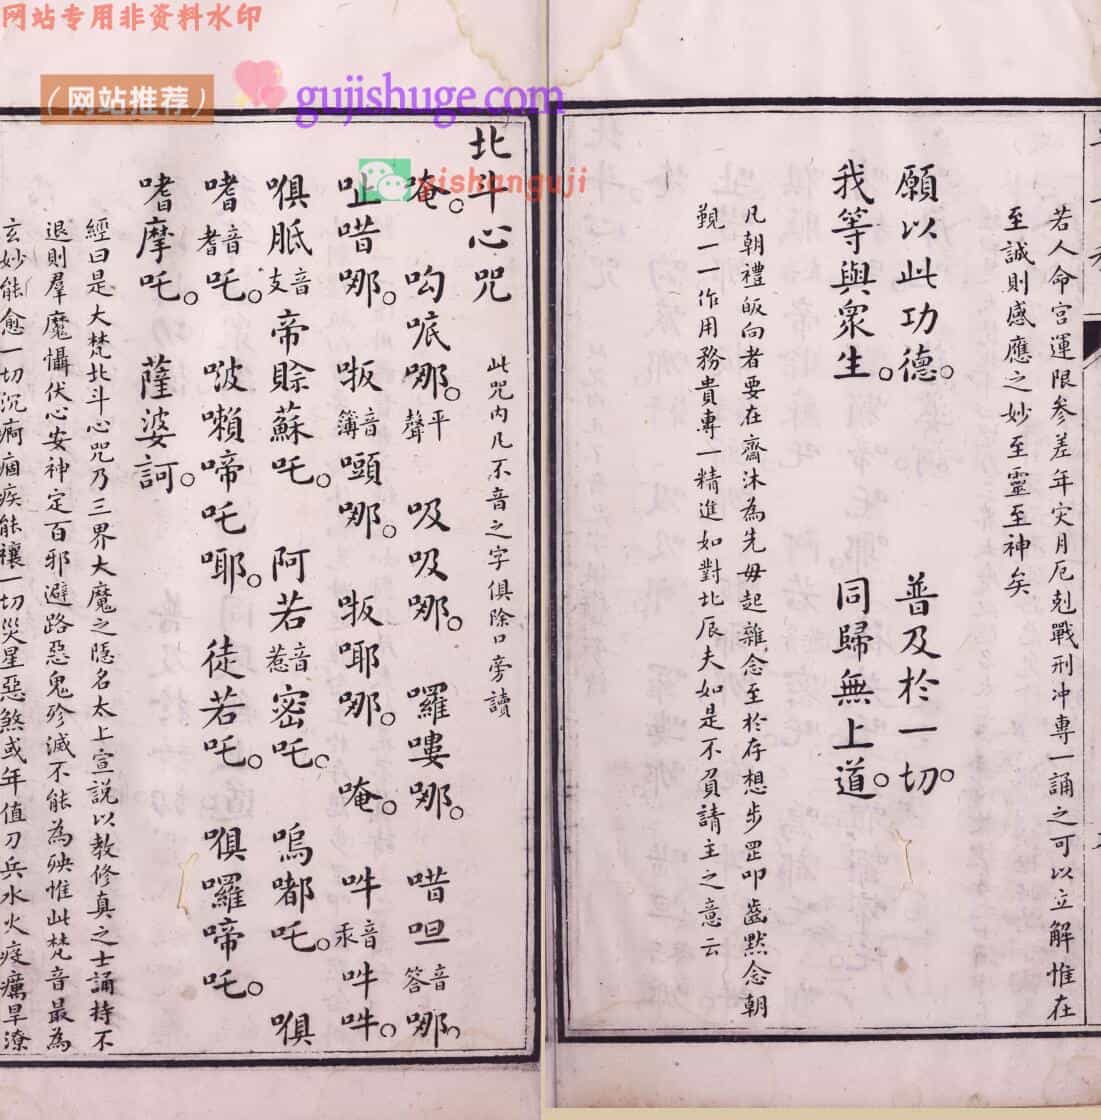 网站专用非资料水印
(网站推荐)
gujishuge.com
yishanguji
若人命宮運限參差年灾月厄剋戰刑冲專一誦之可以立解惟在
至誠則感應之妙至靈至神矣
願以此功德。普及於一切。
我等與衆生。同歸無上道。
凡朝禮皈向者要在齋沐為先毋起雜念至於存想步罡叩齒默念朝
覲一一作用務貴專一精進如對北辰夫如是不負請主之意云
北斗心咒
此咒内凡不音之字俱除口旁讀
唵。呴哌哪。平聲 吸吸哪。囉嘍哪。唶呾音答哪。
吐唶哪。㗑音簿嚬哪。㗑耶哪。唵。吽音泵吽吽。
唄胝音支帝賒蘇吒。阿若音惹密吒。嗚嘟吒。唄
嗜音耆吒。啵嚫啼吒耶。徒若吒。唄囉啼吒。
嗜摩吒。薩婆訶。
經曰是大梵北斗心咒乃三界大魔之隠名太上宣說以教修真之士誦持不
退則羣魔懾伏心安神定百邪避路惡鬼殄滅不能為殃惟此梵音最為
玄妙能愈一切沉痾痼疾能禳一切災星惡煞或年值刀兵水火疫癘旱潦